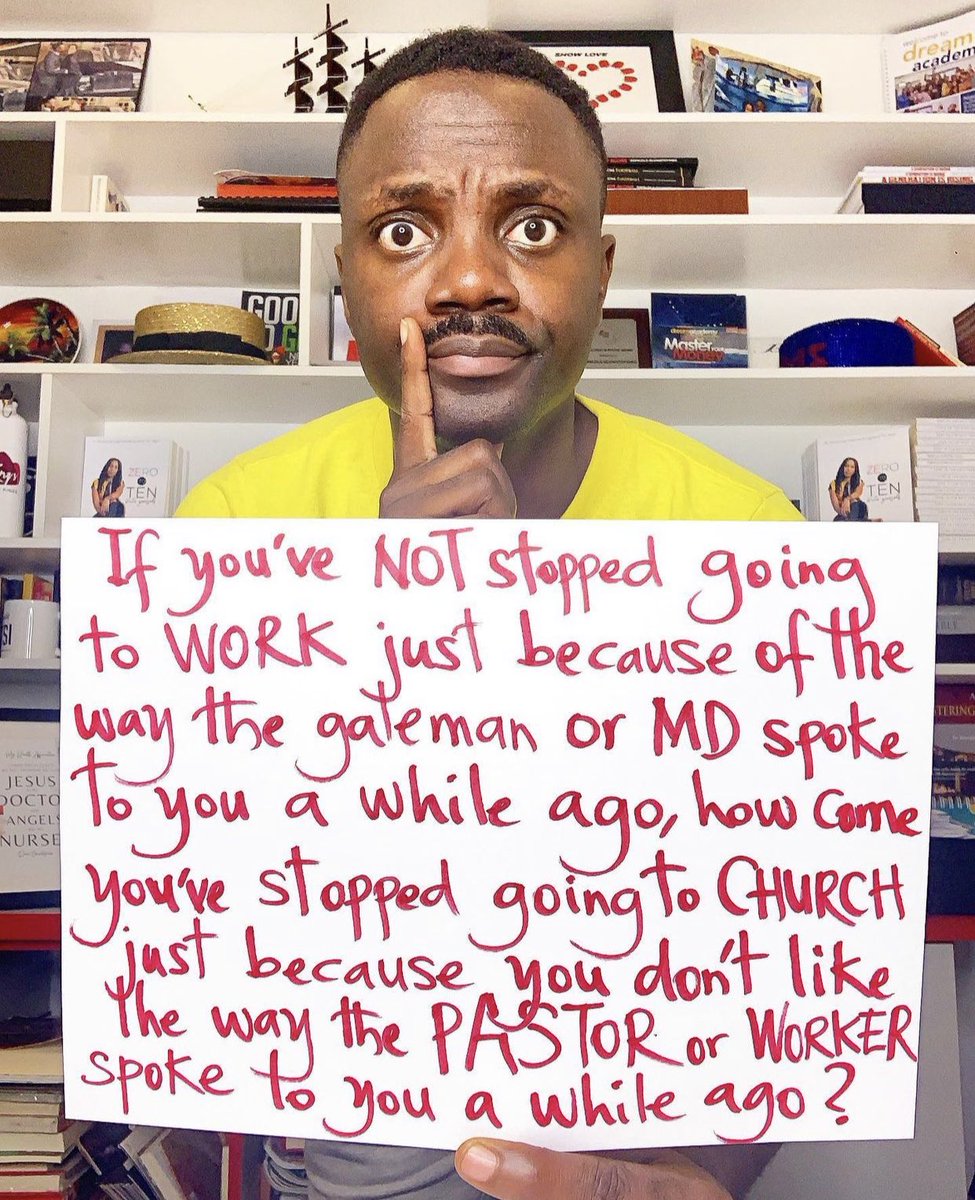 SHOW LOVE
Welcome to
dream
academ
GOO
D G
Master
Money
ZERO
TEN
ZERO
TEN
SI
JESUS
DOCTO
ANGELS
NURSE
TERING
If you've NOT stopped going
to WORK just because of the
way the gateman or MD spoke
to you a while ago, how come
you've stopped going to CHURCH
just because you don't like
the way the PASTOR or WORKER
spoke to you a while ago?